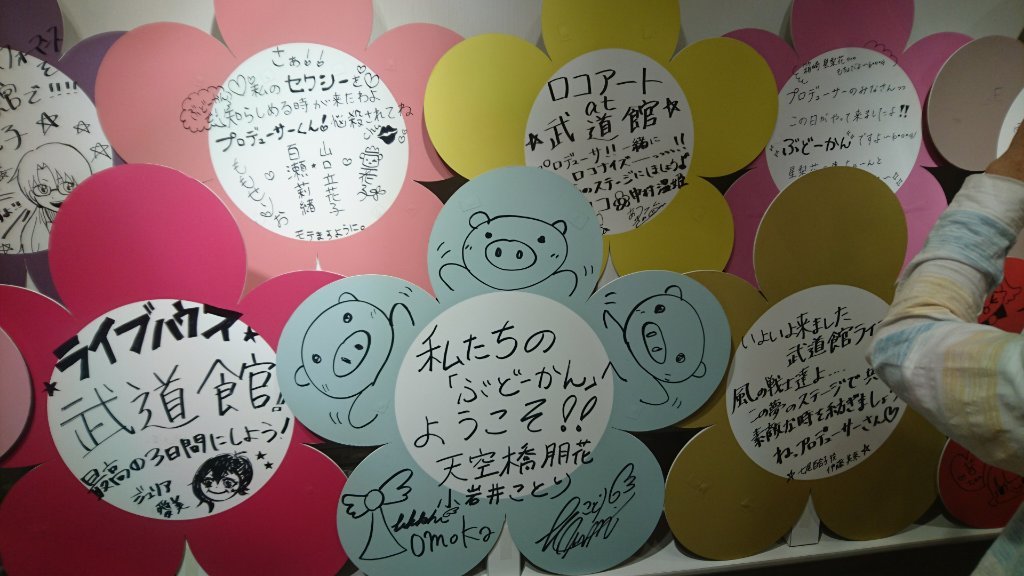 さぁぁ
♡私のセクシーを♡
知らしめる時が来たわよ
プロデューサーくん!悩殺されてね
百瀬莉緒
山口立花子
モテますように。
ロコアート
at
★武道館★
プロデューサ!!一緒に
ロコナイズ
のステージにしましょう
中村温姫
箱崎星梨花
プロデューサーのみなさんっ
この日がやって来ましたよ!!
"ぶどーかん"ですよ
ライブハウス
武道館!
最高の3日間にしよう!
ジュリア
愛美
私たちの
「ぶどーかん」へ
ようこそ!!
天空橋朋花
小岩井ことり
tomoka
いよいよ来ました
武道館ライ
風の戦士達よ…
この夢のステージで共
素敵な時を紡ぎましょう
ね、プロデューサーさん♡